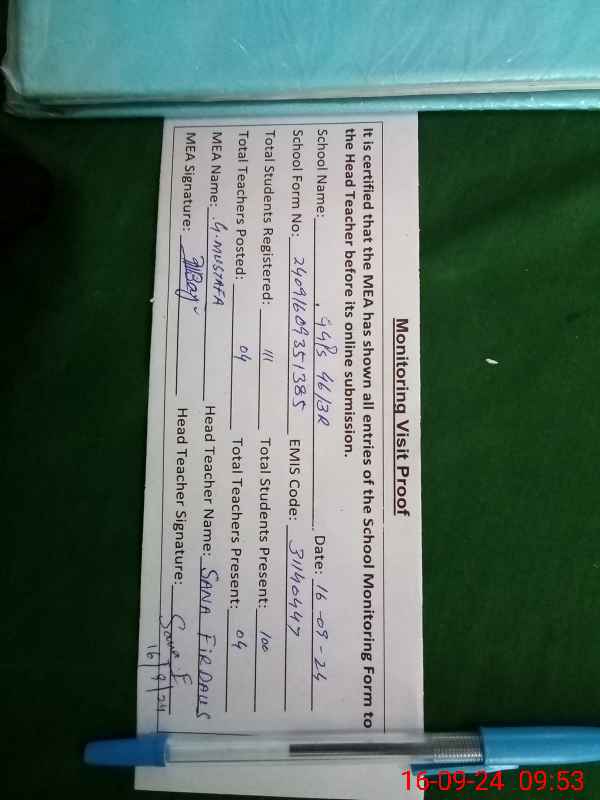 Monitoring Visit Proof
It is certified that the MEA has shown all entries of the School Monitoring Form to
the Head Teacher before its online submission.
School Name: GGPS 46/3R Date: 16-09-24
School Form No: 24091609351385 EMIS Code: 31140447
Total Students Registered: 111 Total Students Present: 100
Total Teachers Posted: 04 Total Teachers Present: 04
MEA Name: G.MUSTAFA Head Teacher Name: SANA FIRDAUS
MEA Signature: Head Teacher Signature: Sana.F
16/9/24
16-09-24 09:53